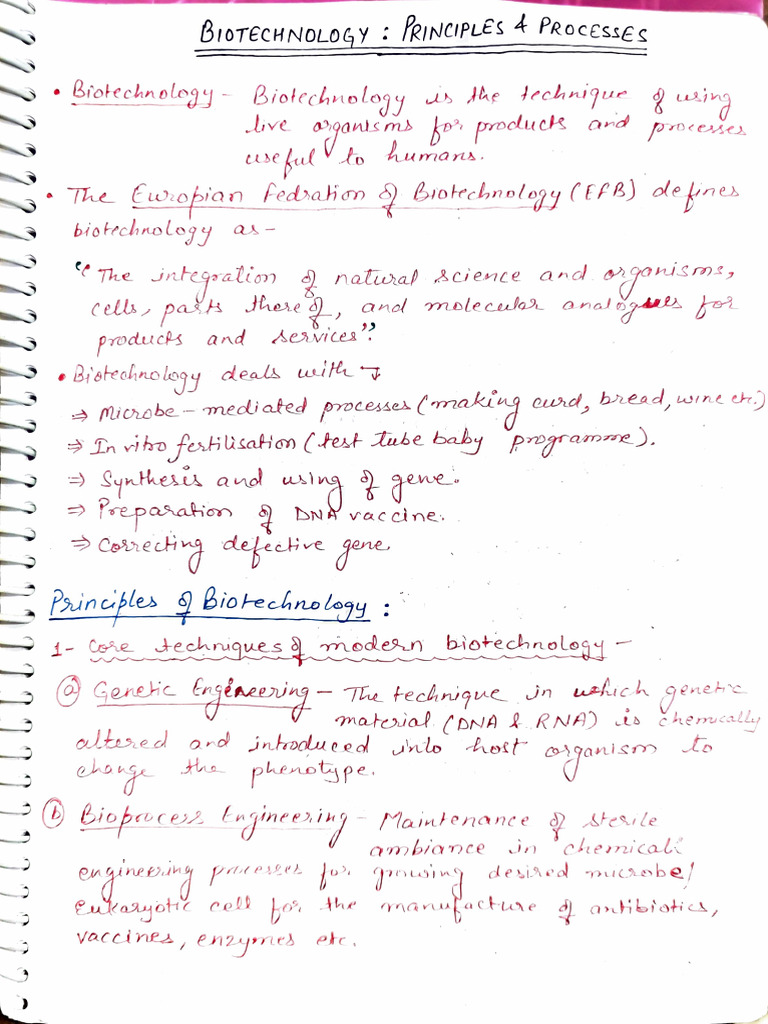 BIOTECHNOLOGY : PRINCIPLES & PROCESSES
• Biotechnology - Biotechnology is the technique of using
live organisms for products and processes
useful to humans.
• The Europian Fedration of Biotechnology (EFB) defines
biotechnology as-
"The integration of natural science and organisms,
cells, parts there of, and molecular analogues for
products and services".
• Biotechnology deals with →
⇒ Microbe-mediated processes (making curd, bread, wine etc.)
⇒ In vitro fertilisation (test tube baby programme).
⇒ Synthesis and using of gene.
⇒ Preparation of DNA vaccine.
⇒ Correcting defective gene.
Principles of Biotechnology :
1- Core techniques of modern biotechnology -
ⓐ Genetic Engineering - The technique in which genetic
material (DNA & RNA) is chemically
altered and introduced into host organism to
change the phenotype.
ⓑ Bioprocess Engineering - Maintenance of sterile
ambiance in chemical
engineering processes for growing desired microbe/
eukaryotic cell for the manufacture of antibiotics,
vaccines, enzymes etc.